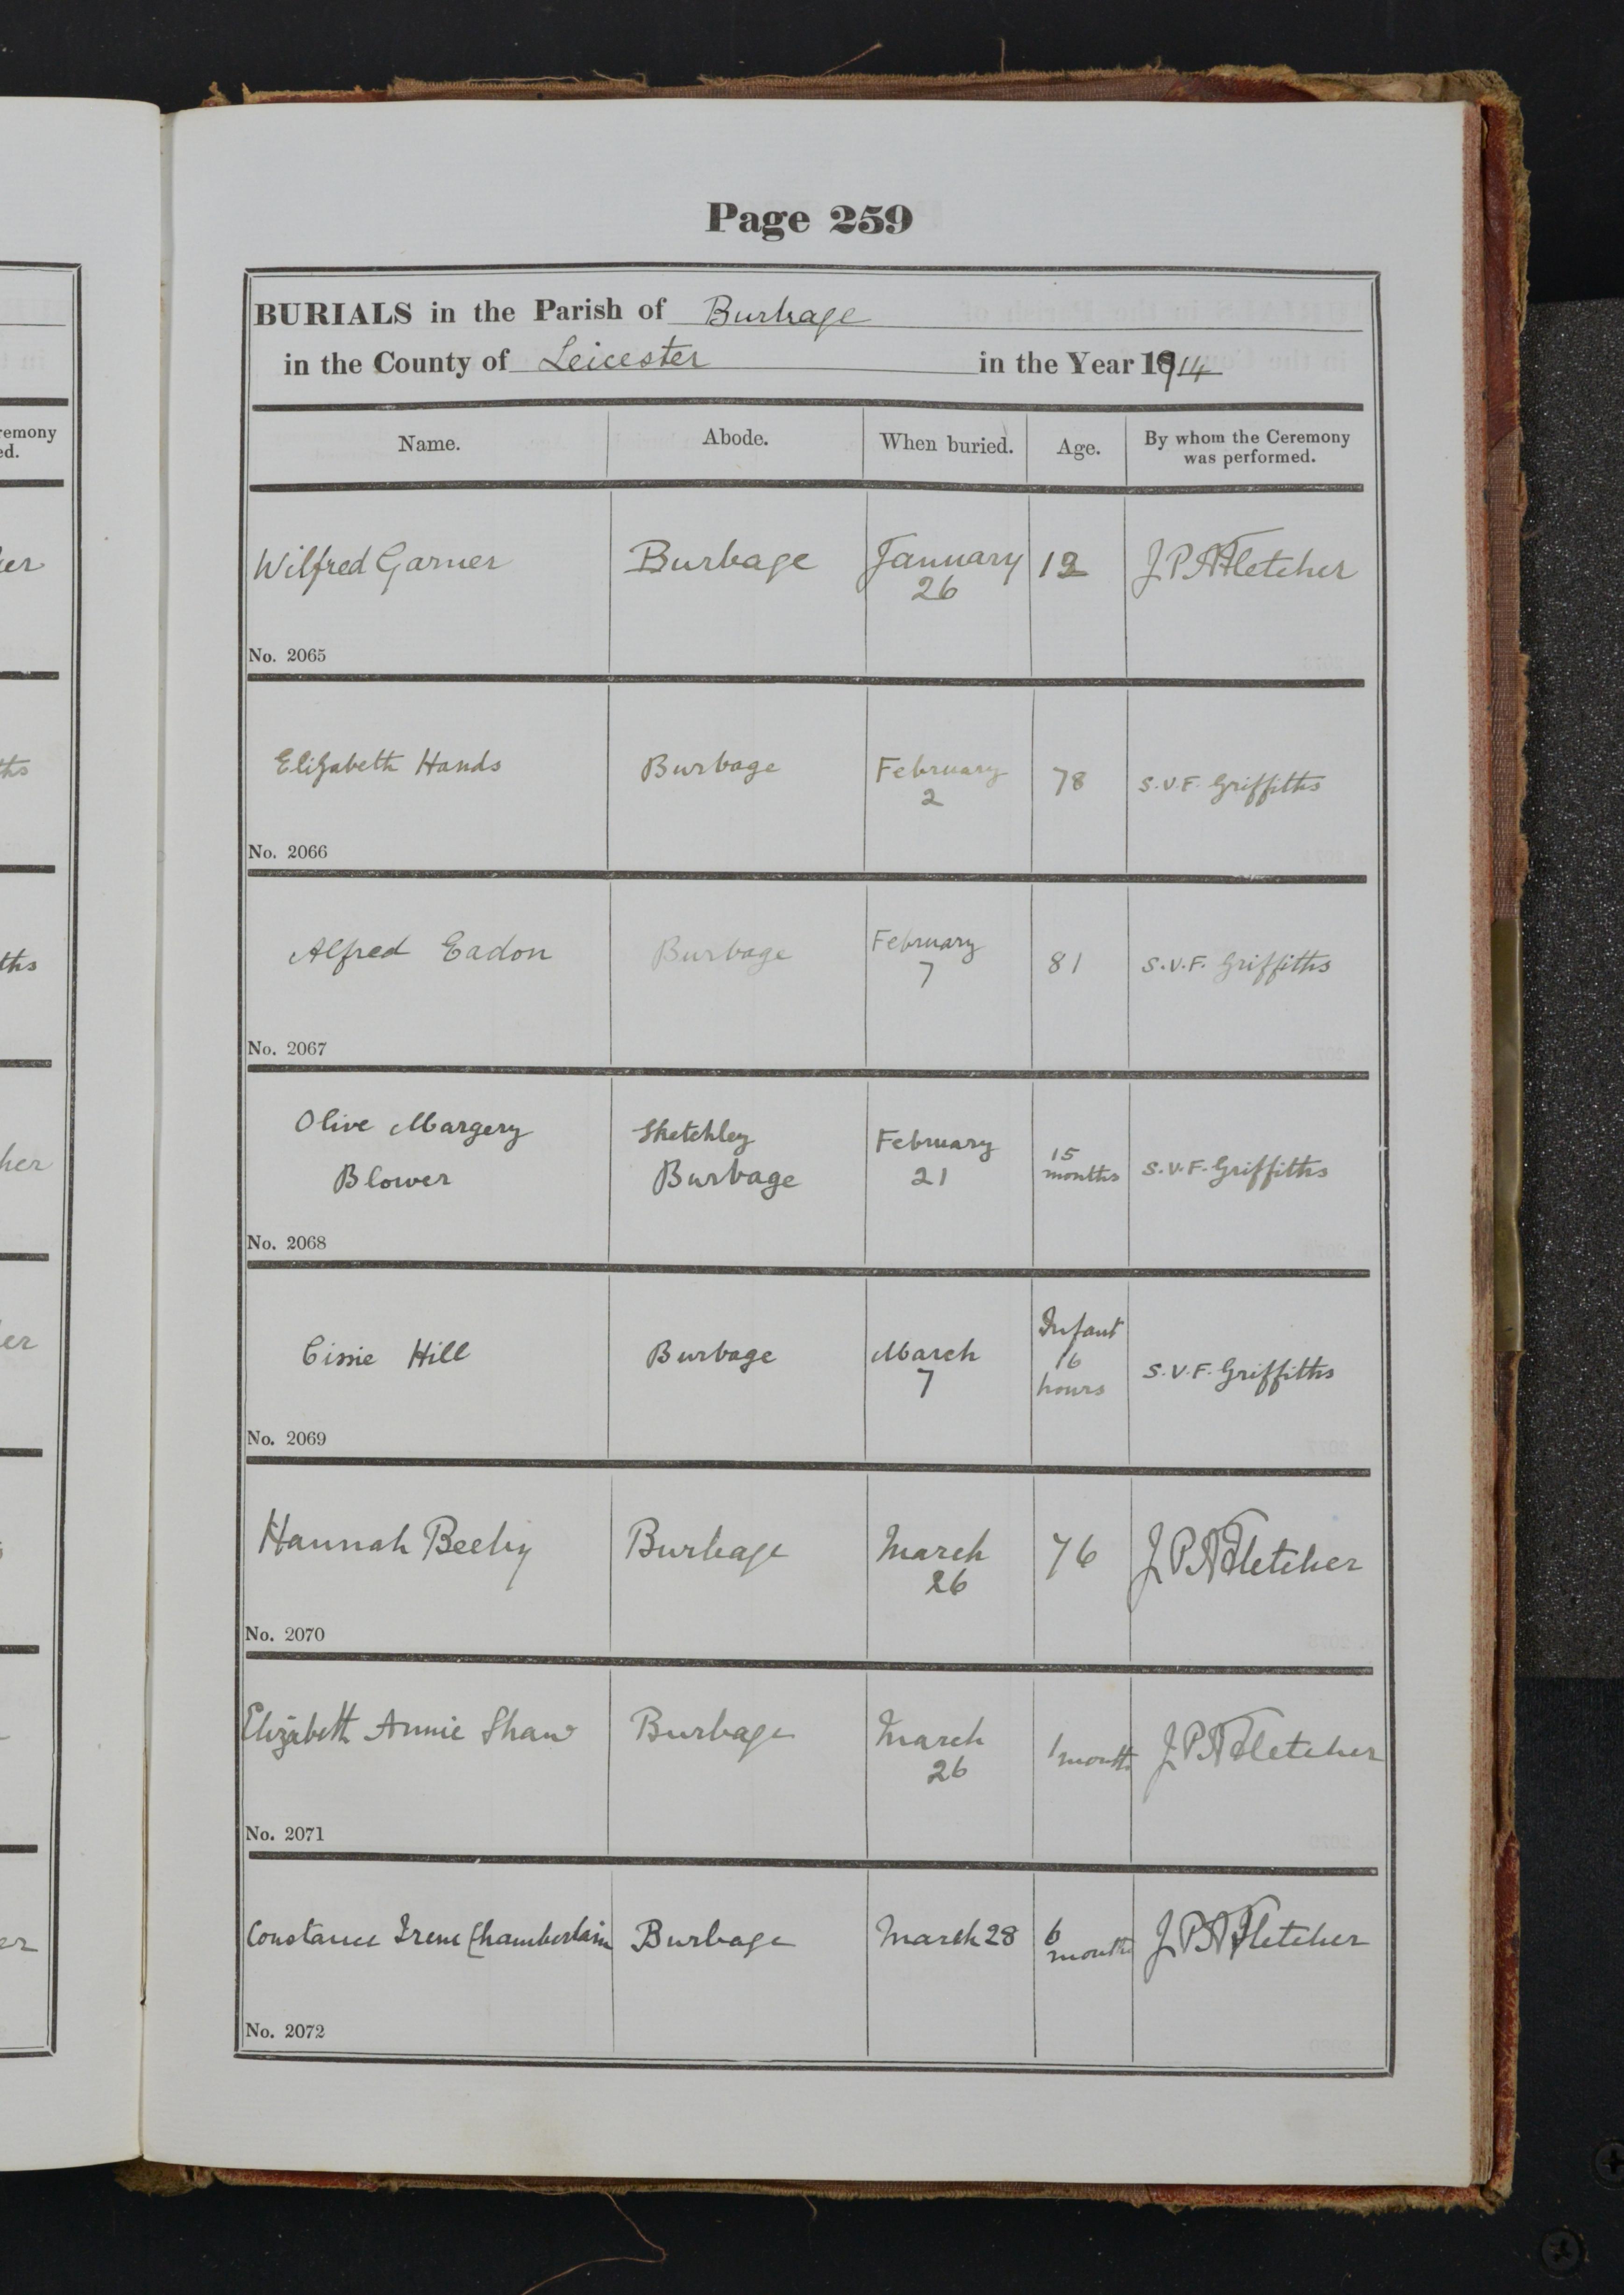 Page 259
BURIALS in the Parish of Burbage
in the County of Leicester in the Year 1914
Name. Abode. When buried. Age. By whom the Ceremony
was performed.
Wilfred Garner Burbage January 12 J P A Fletcher
26
No. 2065
Elizabeth Hands Burbage February 78 S.V.F. Griffiths
2
No. 2066
Alfred Eadon Burbage February 81 S.V.F. Griffiths
7
No. 2067
Olive Margery Sketchley February 15
Blower Burbage 21 months S.V.F. Griffiths
No. 2068
Infant
Cissie Hill Burbage March 16 S.V.F. Griffiths
7 hours
No. 2069
Hannah Beeby Burbage March 76 J P A Fletcher
26
No. 2070
Elizabeth Annie Shaw Burbage March 1 month J P A Fletcher
26
No. 2071
Constance Irene Chamberlain Burbage March 28 6 J P A Fletcher
months
No. 2072